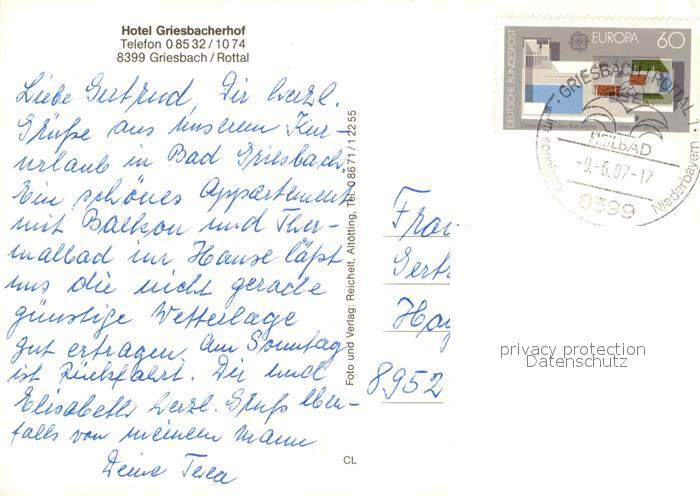 Hotel Griesbacherhof
Telefon 0 85 32 / 10 74
8399 Griesbach / Rottal
Liebe Gertrud, Dir herzl.
Grüße aus unserem Kur-
urlaub in Bad Griesbach.
Ein schönes Appartement
mit Balkon und Ther-
malbad im Hause läßt
uns die nicht gerade
günstige Wetterlage
gut ertragen. Am Sonntag
ist Rückfahrt. Dir und
Elisabeth herzl. Gruß eben-
falls von meinem Mann
Deine
CL
Foto und Verlag: Reichelt, Altötting, Tel. 0 86 71 / 1 22 55
DEUTSCHE BUNDESPOST
EUROPA 60
GRIESBACH I. ROTTAL 1
HEILBAD
-9.-6.87-17
8399
Niederbayern
Frau
Gert
Hay
8952
privacy protection
Datenschutz